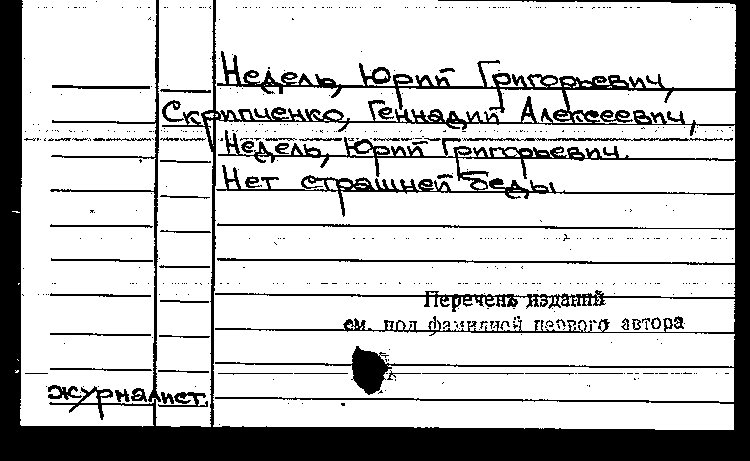 Недель, Юрий Григорьевич,
Скрипченко, Геннадий Алексеевич,
Недель, Юрий Григорьевич.
Нет страшней беды.
Перечень изданий
см. под фамилией первого автора
журналист.